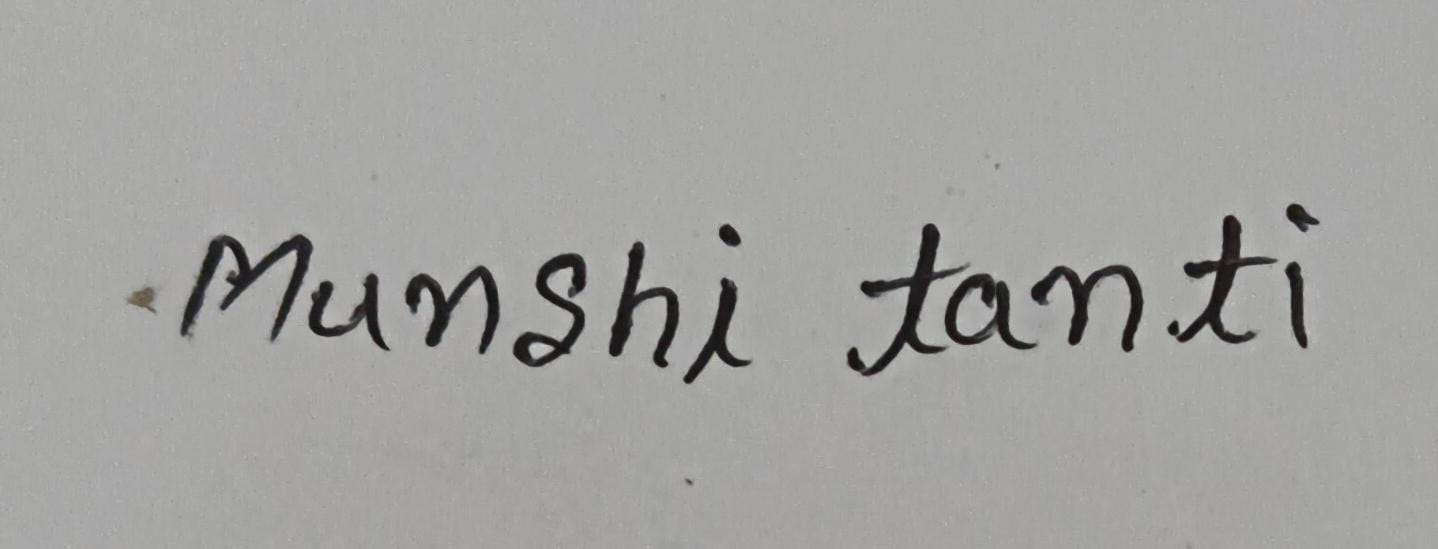 Munshi tanti